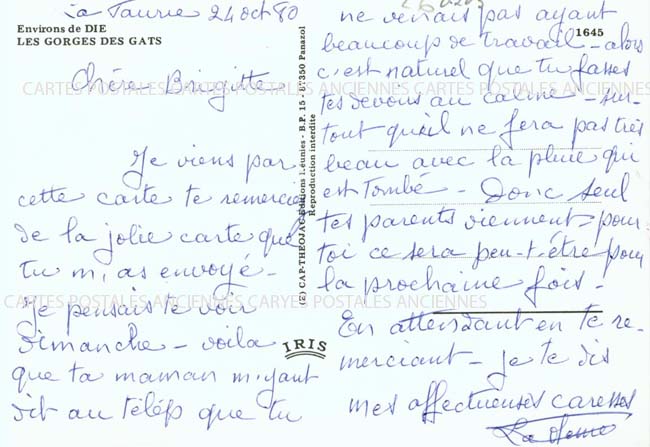 La Taurie 24 oct 80
Environs de DIE
LES GORGES DES GATS
Chère Brigitte
Je viens par
cette carte te remercie
de la jolie carte que
tu m,as envoyé -
Je pensais te voir
Dimanche - voila
que ta maman m,yant
dit au téléph que tu
(E) CAP-THEOJAC Editions Réunies - B.P. 15 - 87350 Panazol
Reproduction interdite
IRIS
1645
ne venais pas ayant
beaucoup de travail - alors
c'est naturel que tu fasses
tes devous au calme - sur-
tout qu'il ne fera pas très
beau avec la pluie qui
est tombé - Donc seul
tes parents viennent - pour
toi ce sera peu-t-être pour
la prochaine fois -
En attendant en te re-
merciant - je te dis
mes affectueuses caresses
CARTES POSTALES ANCIENNES CARTES POSTALES ANCIENNES CARTES POSTALES ANCIENNES
CARTES POSTALES ANCIENNES CARYES POSTALES ANCIENNES